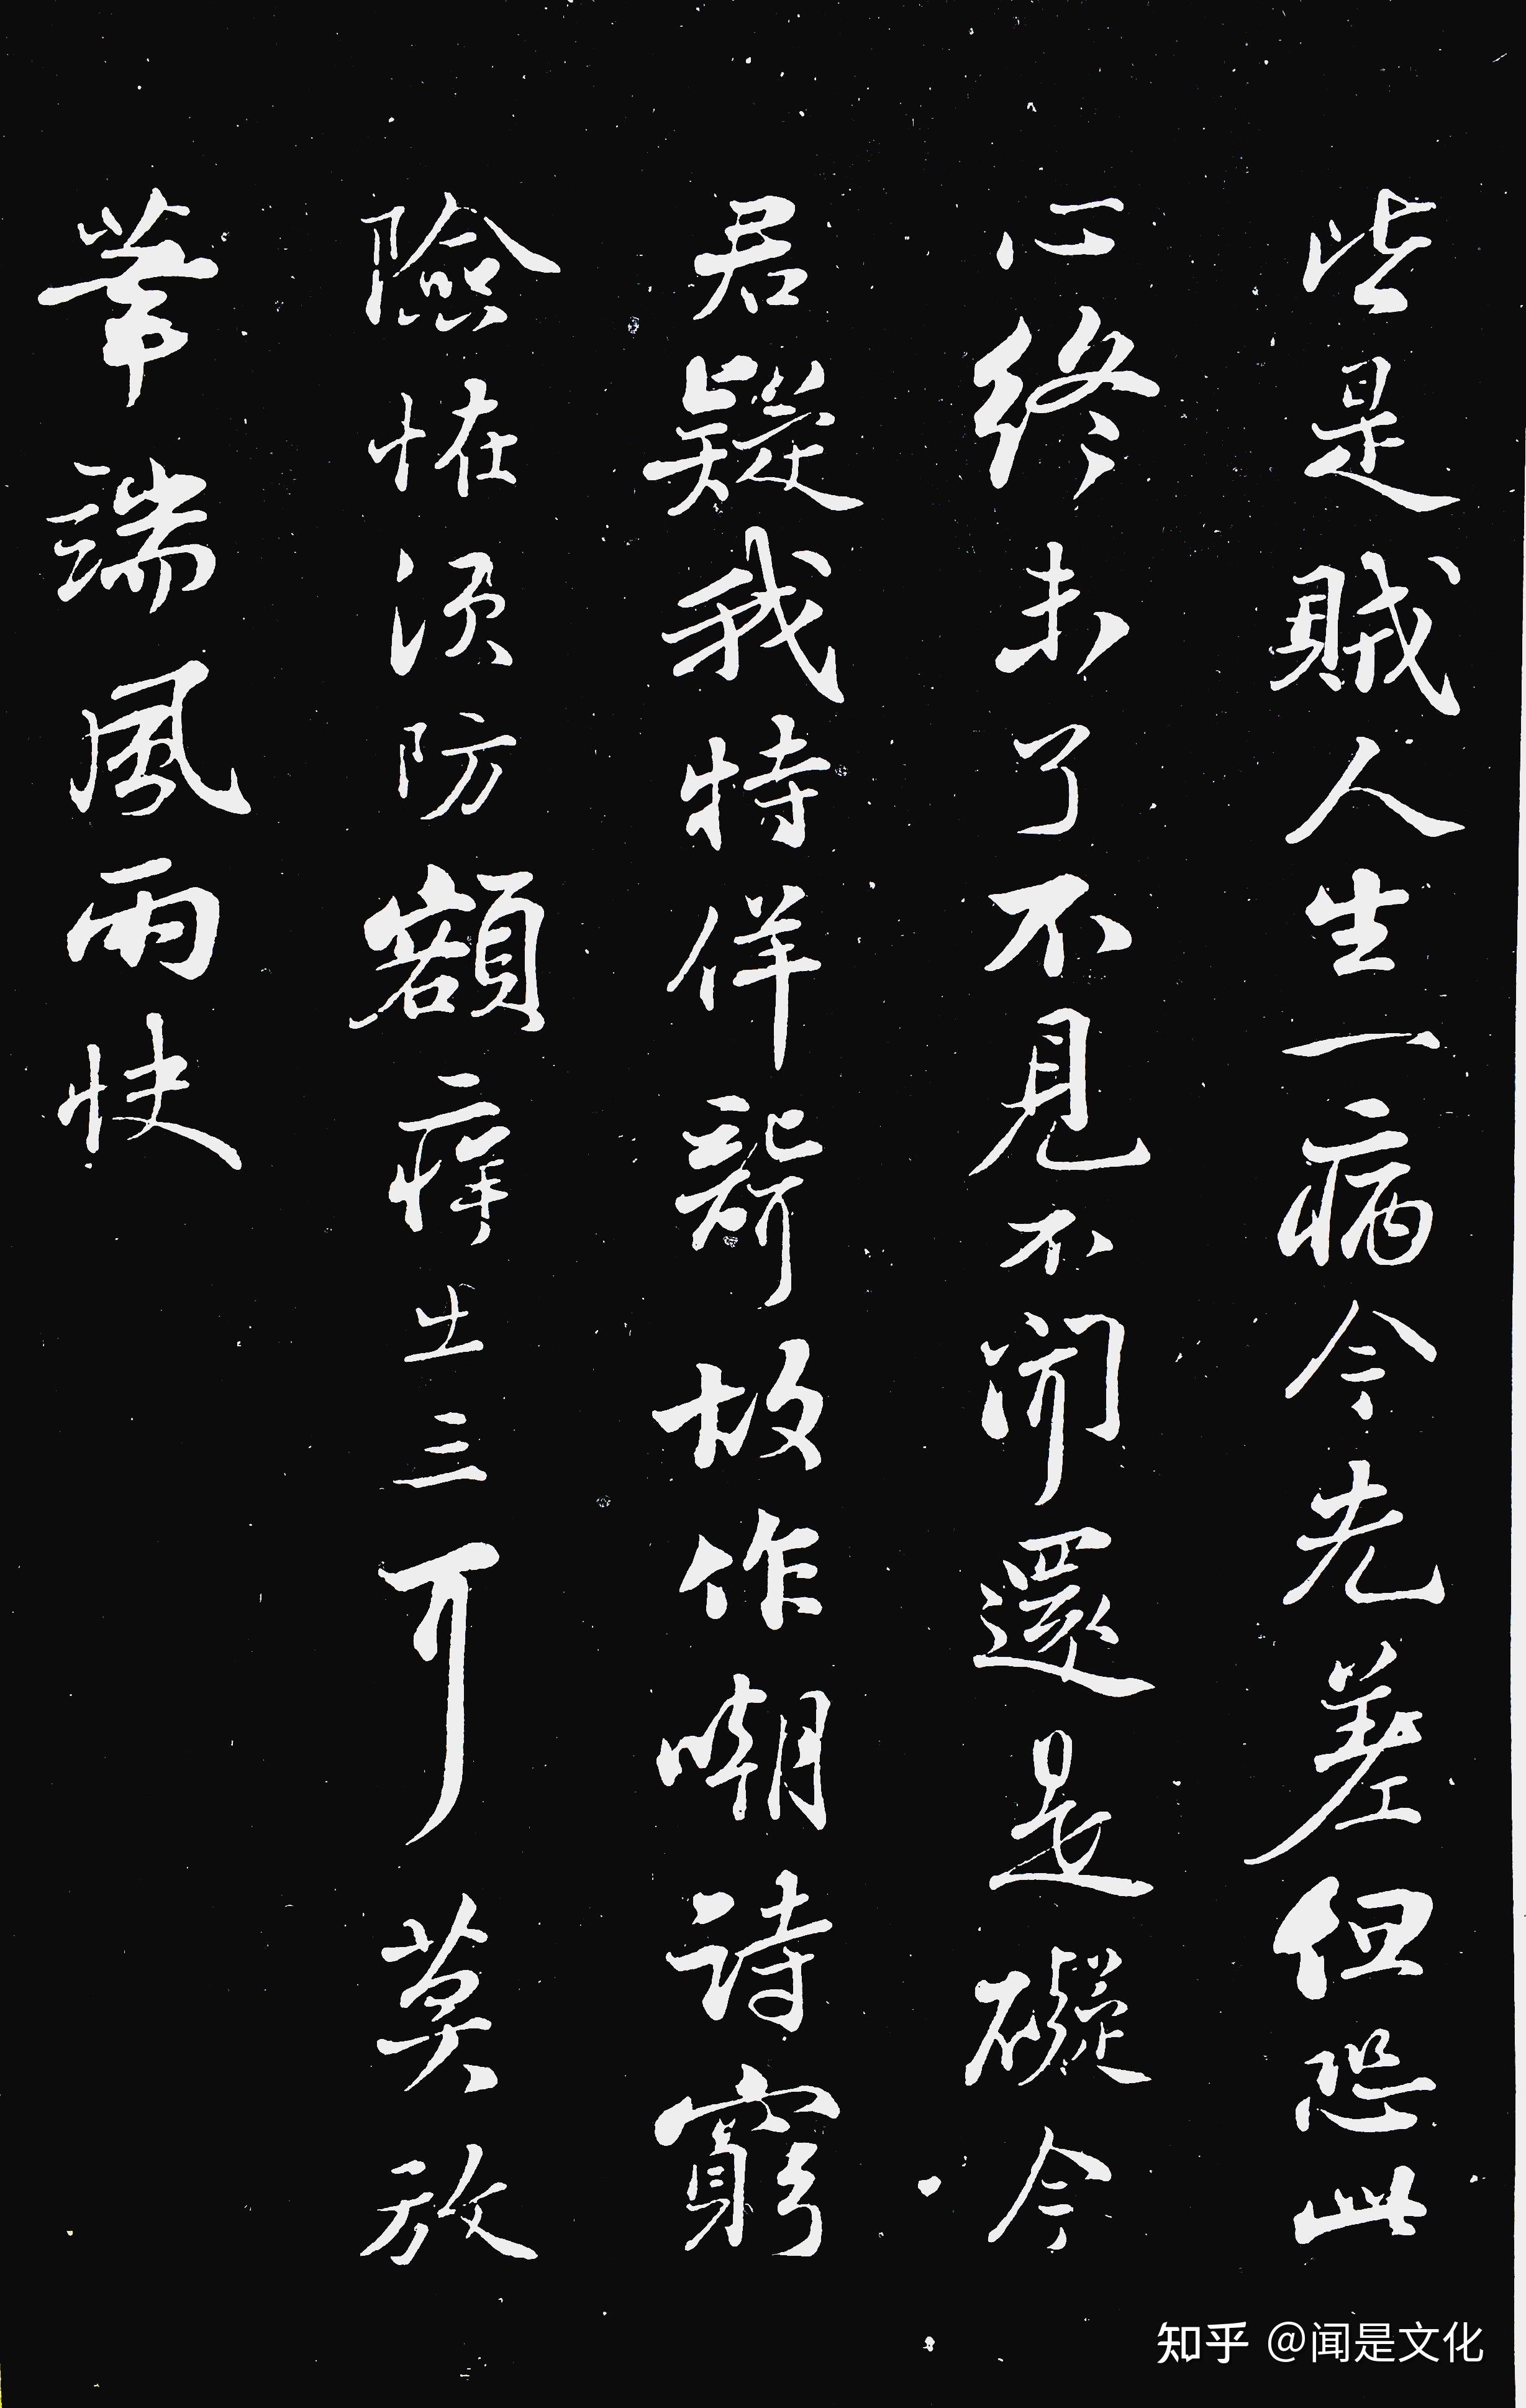 皆是賊人生一病今先差但恐此
心終未了不見不聞還是礙今
君疑我特佯聾故作嘲詩窮
險恠須防額痒出三耳莫放
筆端風雨快
知乎 @闻是文化